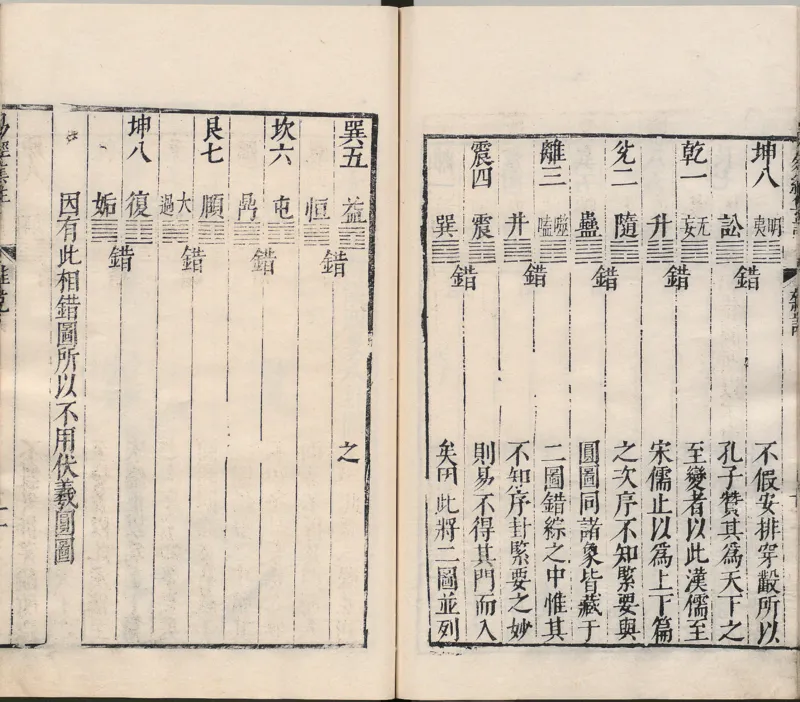 坤八 明夷 錯 不假安排穿鑿所以
訟 孔子贊其爲天下之
乾一 无妄 錯 至變者以此漢儒至
升 宋儒止以爲上下篇
兊二 隨 錯 之次序不知緊要與
蠱 圓圖同諸象皆藏于
離三 噬嗑 錯 二圖錯綜之中惟其
井 不知序封緊要之妙
震四 震 錯 則易不得其門而入
巽 矣因此將二圖並列
巽五 益 錯 之
恒
坎六 屯 錯
鼎
艮七 頤 錯
大過
坤八 復 錯
姤
因有此相錯圖所以不用伏羲圓圖